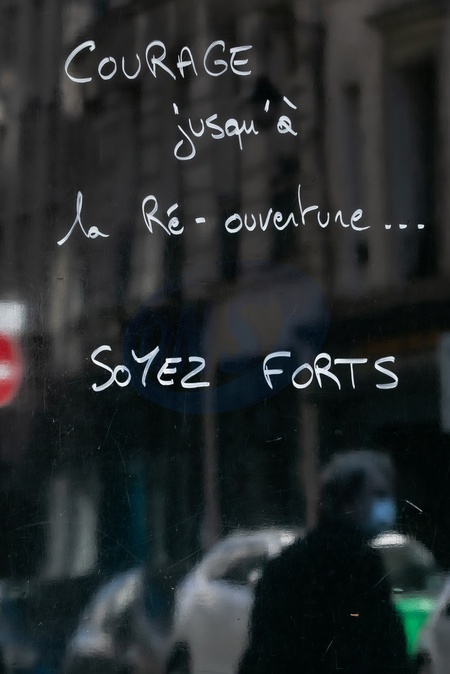 COURAGE
jusqu'à
la Ré-ouverture...
SOYEZ FORTS